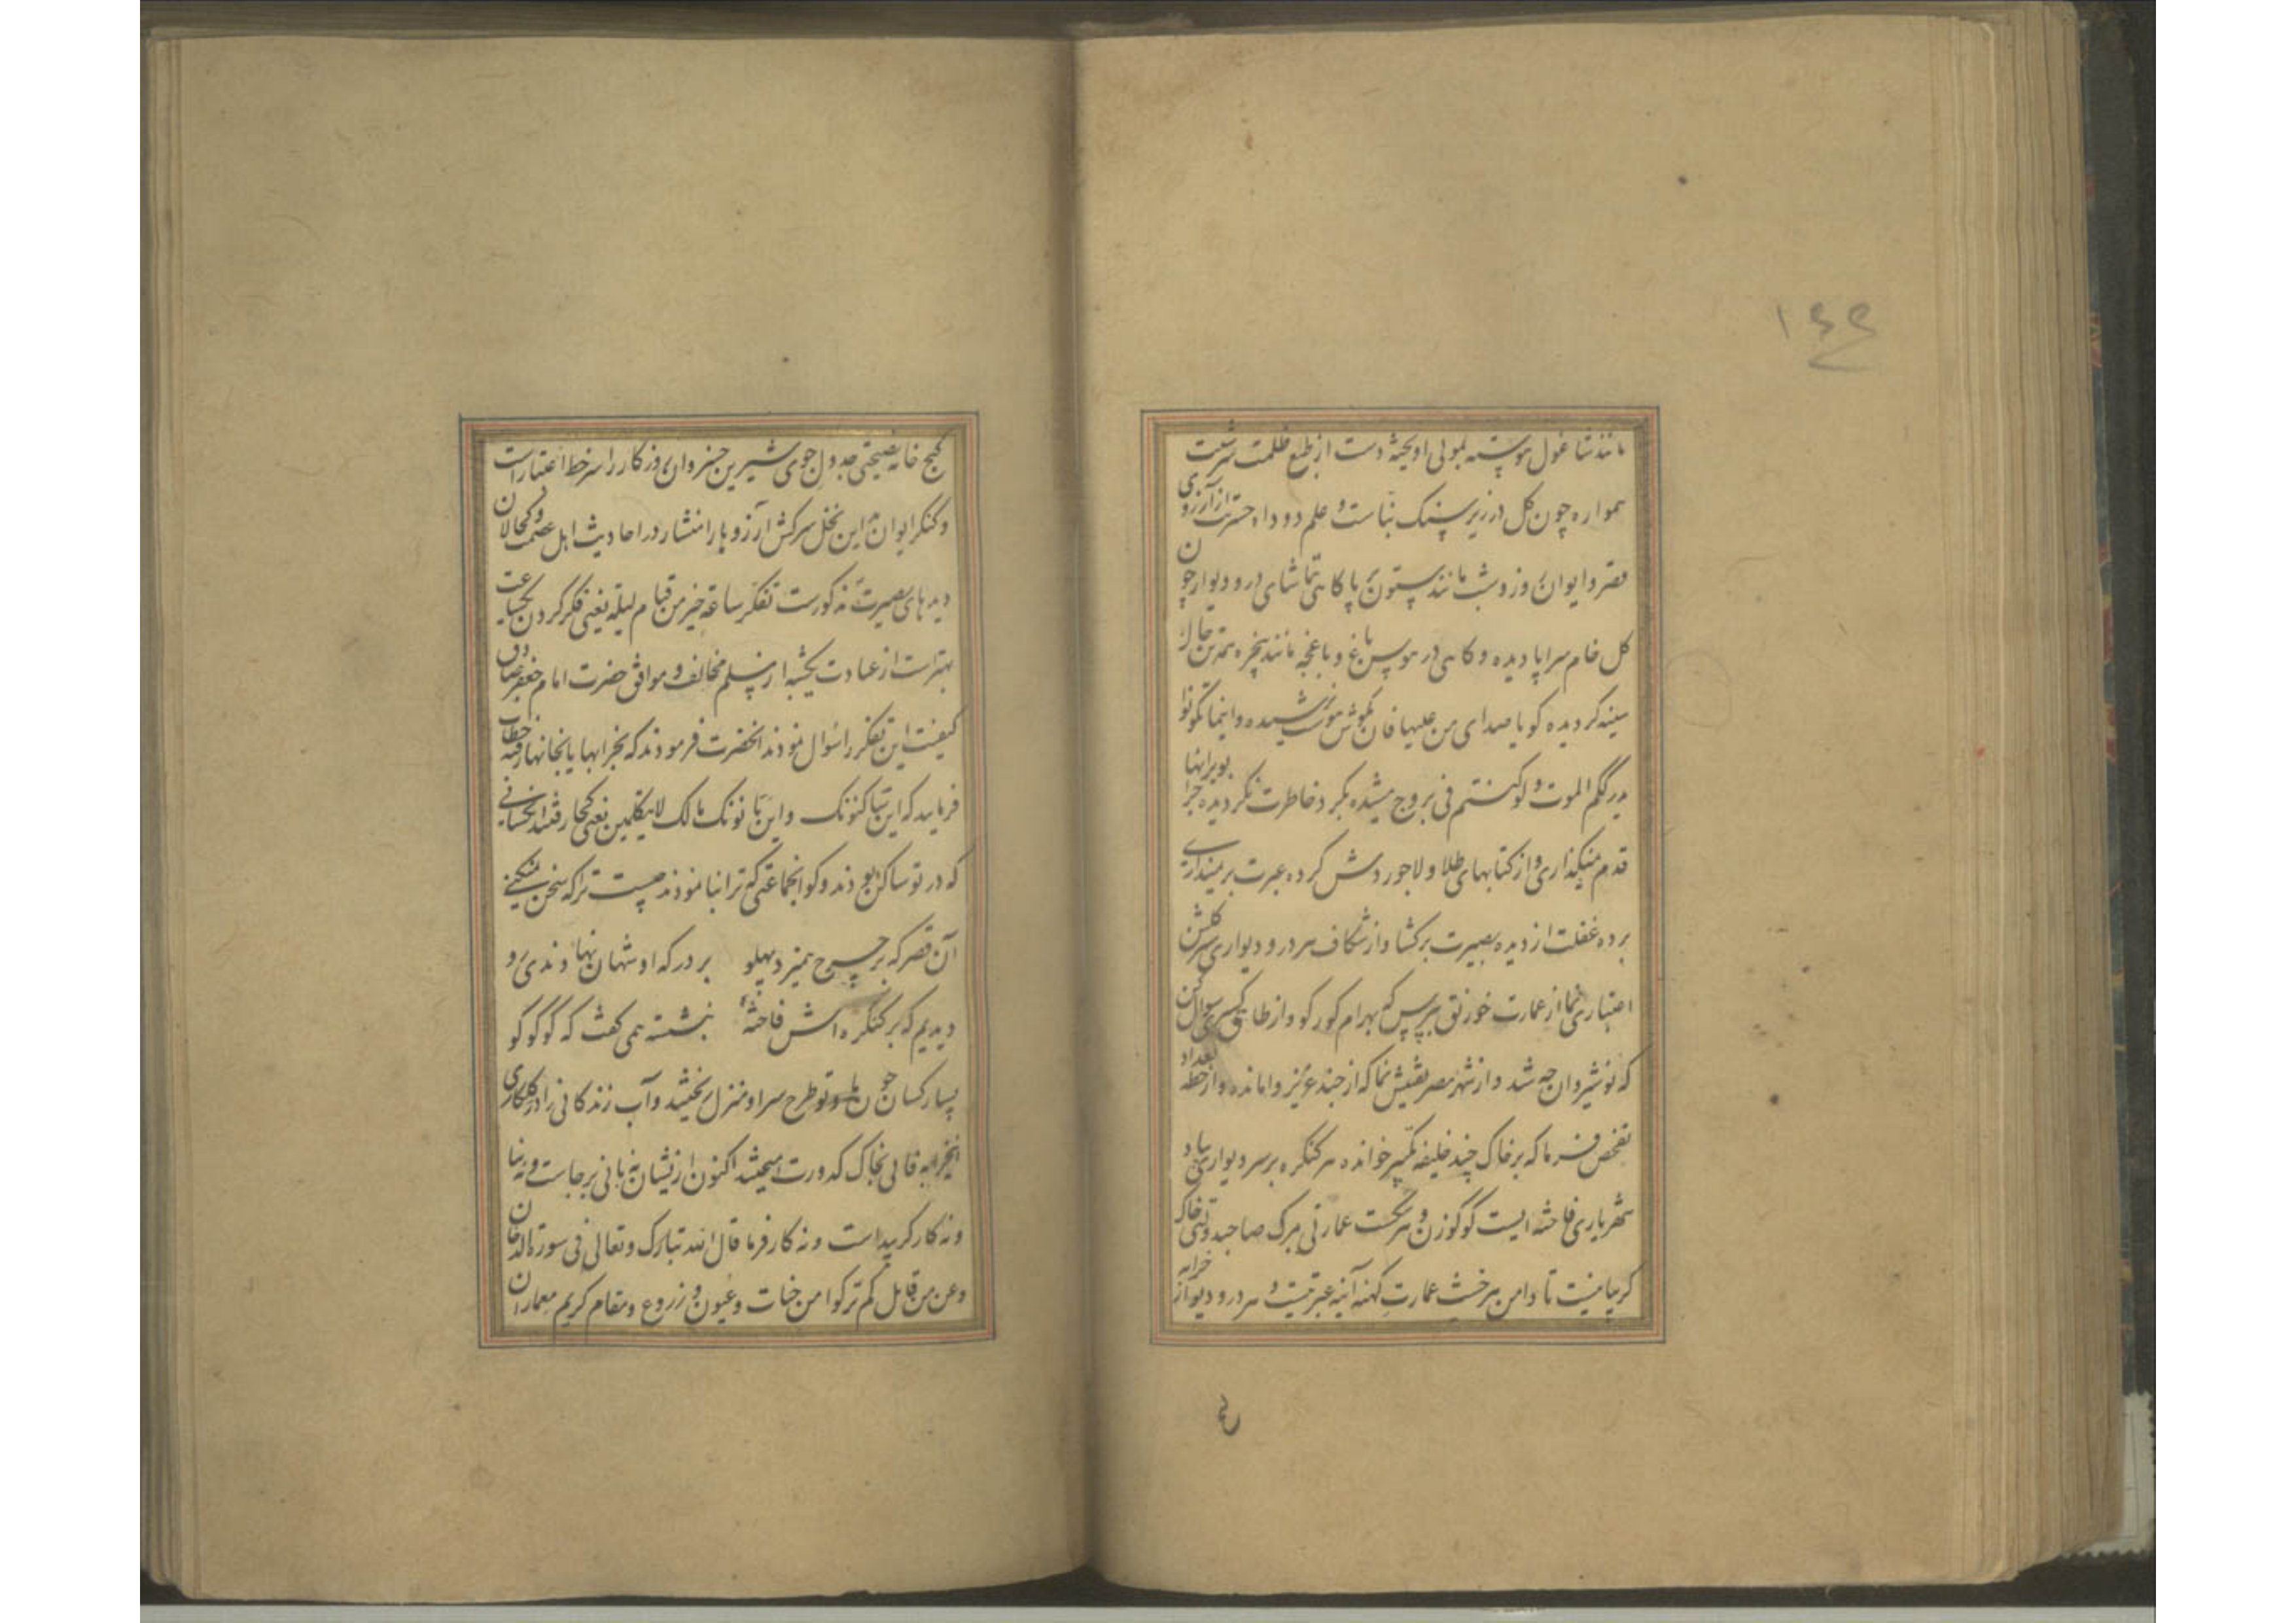 ۱۴۴
مانند شاغول پیوسته بمویی اویخته دست از طبع ظلمت سرشت
همواره چون کل در زیر سنک بناست و علم دود اد حسرت از آرزوی
قصر و ایوان روز و شب مانند ستون بر پا کاهی تماشای در و دیوار چون
کل خام سراپا دیده و کاهی در هوس باغ و باغچه مانند پنجره تن
سینه کردیده کویا صدای من علیها فان بکوش هوشت نرسیده و اینما تکونوا
یدرککم الموت و لو کنتم فی بروج مشیده بکرد خاطرت نکردیده چرا بویرانها
قدم نمیکذاری و از کتابهای طلا و لاجوردش کرده عبرت بر نمیداری
پرده غفلت از دیده بصیرت برکشا و از شکاف هر در و دیواری سر کلشن
اعتباری نما از عمارت خورنق بپرس که بهرام کور کو و از طاق کسری سوال کن
که نوشیروان چه شد و از شهر مصر تفتیش نما که از چند عزیز وامانده و از خطه بغداد
تفحص فرما که بر خاک چند خلیفه تکبیر خوانده هر کنکره بر سر دیواری بیاد
شهریاری فاخته ایست کوکو زن و هر خشت عمارتی بمرک صاحبدولتی خاک
کریبانیست تا دامن هر خشت عمارت کهنه آینه عبرتیست و هر در و دیوار خرابه
کنج خانه نصیحتی جدول جوی شیرین خسروان روزکار را سر خط اعتبار است
و کنکر ایوان این نخل سرکش آرزوها را منشار در احادیث اهل عصمت و کحالان
دیدهای بصیرت مذکورست تفکر ساعة خیر من قیام لیلة یعنی فکر کردن یکساعت
بهتر است از عبادت یکشبه از مسلم مخالف و موافق حضرت امام جعفر صادق
کیفیت این تفکر را سوال نمودند انحضرت فرمودند که بخرابها یا بخانها رفته خطاب
فرماید که این ساکنوک و این بانوک مالک لا تتکلمین یعنی کجا رفتند انکسانی
که در تو ساکن بودند و کو انجماعتی که ترا بنا نمودند چیست ترا که سخن نمیکنی
آن قصر که بر چرخ همیزد پهلو بر درکه او شهان نهادندی رو
دیدیم که بر کنکره اش فاخته بنشسته همی کفت که کو کو کو کو
بسا کسان چون من و تو طرح سرا و منزل ریختند و آب زندکانی را در کلکاری
اینخرابه فانی بخاک کدورت امیختند اکنون ازیشان نه بانی برجاست و نه بنا
و نه کارکر پیداست و نه کارفرما قال الله تبارک و تعالی فی سورة الدخان
و عن من قابل کم ترکوا من جنات و عیون و زروع و مقام کریم معماران